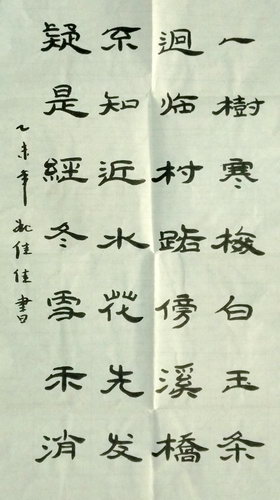 一樹寒梅白玉条
迴临村路傍溪橋
不知近水花先发
疑是經冬雪未消
乙未年佳佳書